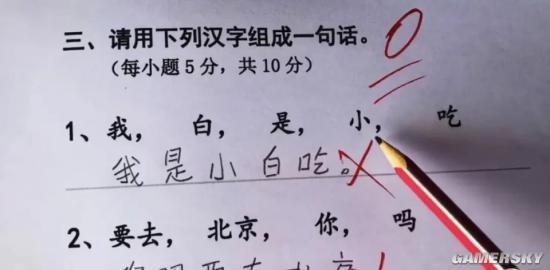 三、请用下列汉字组成一句话。 0
（每小题5分，共10分）
1、我， 白， 是， 小， 吃
我是小白吃。
2、要去， 北京， 你， 吗
GAMERSKY